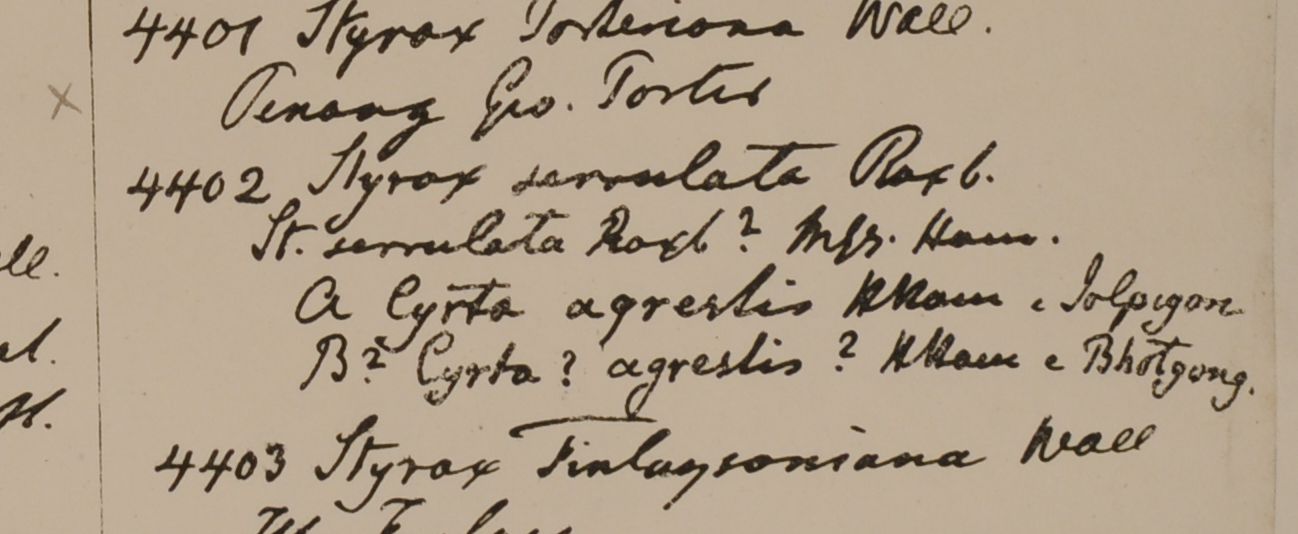 4401 Styrox Porteriana Wall.
Penang Geo. Porter
4402 Styrax serrulata Roxb.
ll. St. serrulata Roxb? Mss. Ham.
A Cyrta agrestis HHam e Jolpigon
B? Cyrta? agrestis? HHam e Bhotgong.
4403 Styrax Finlaysoniana Wall